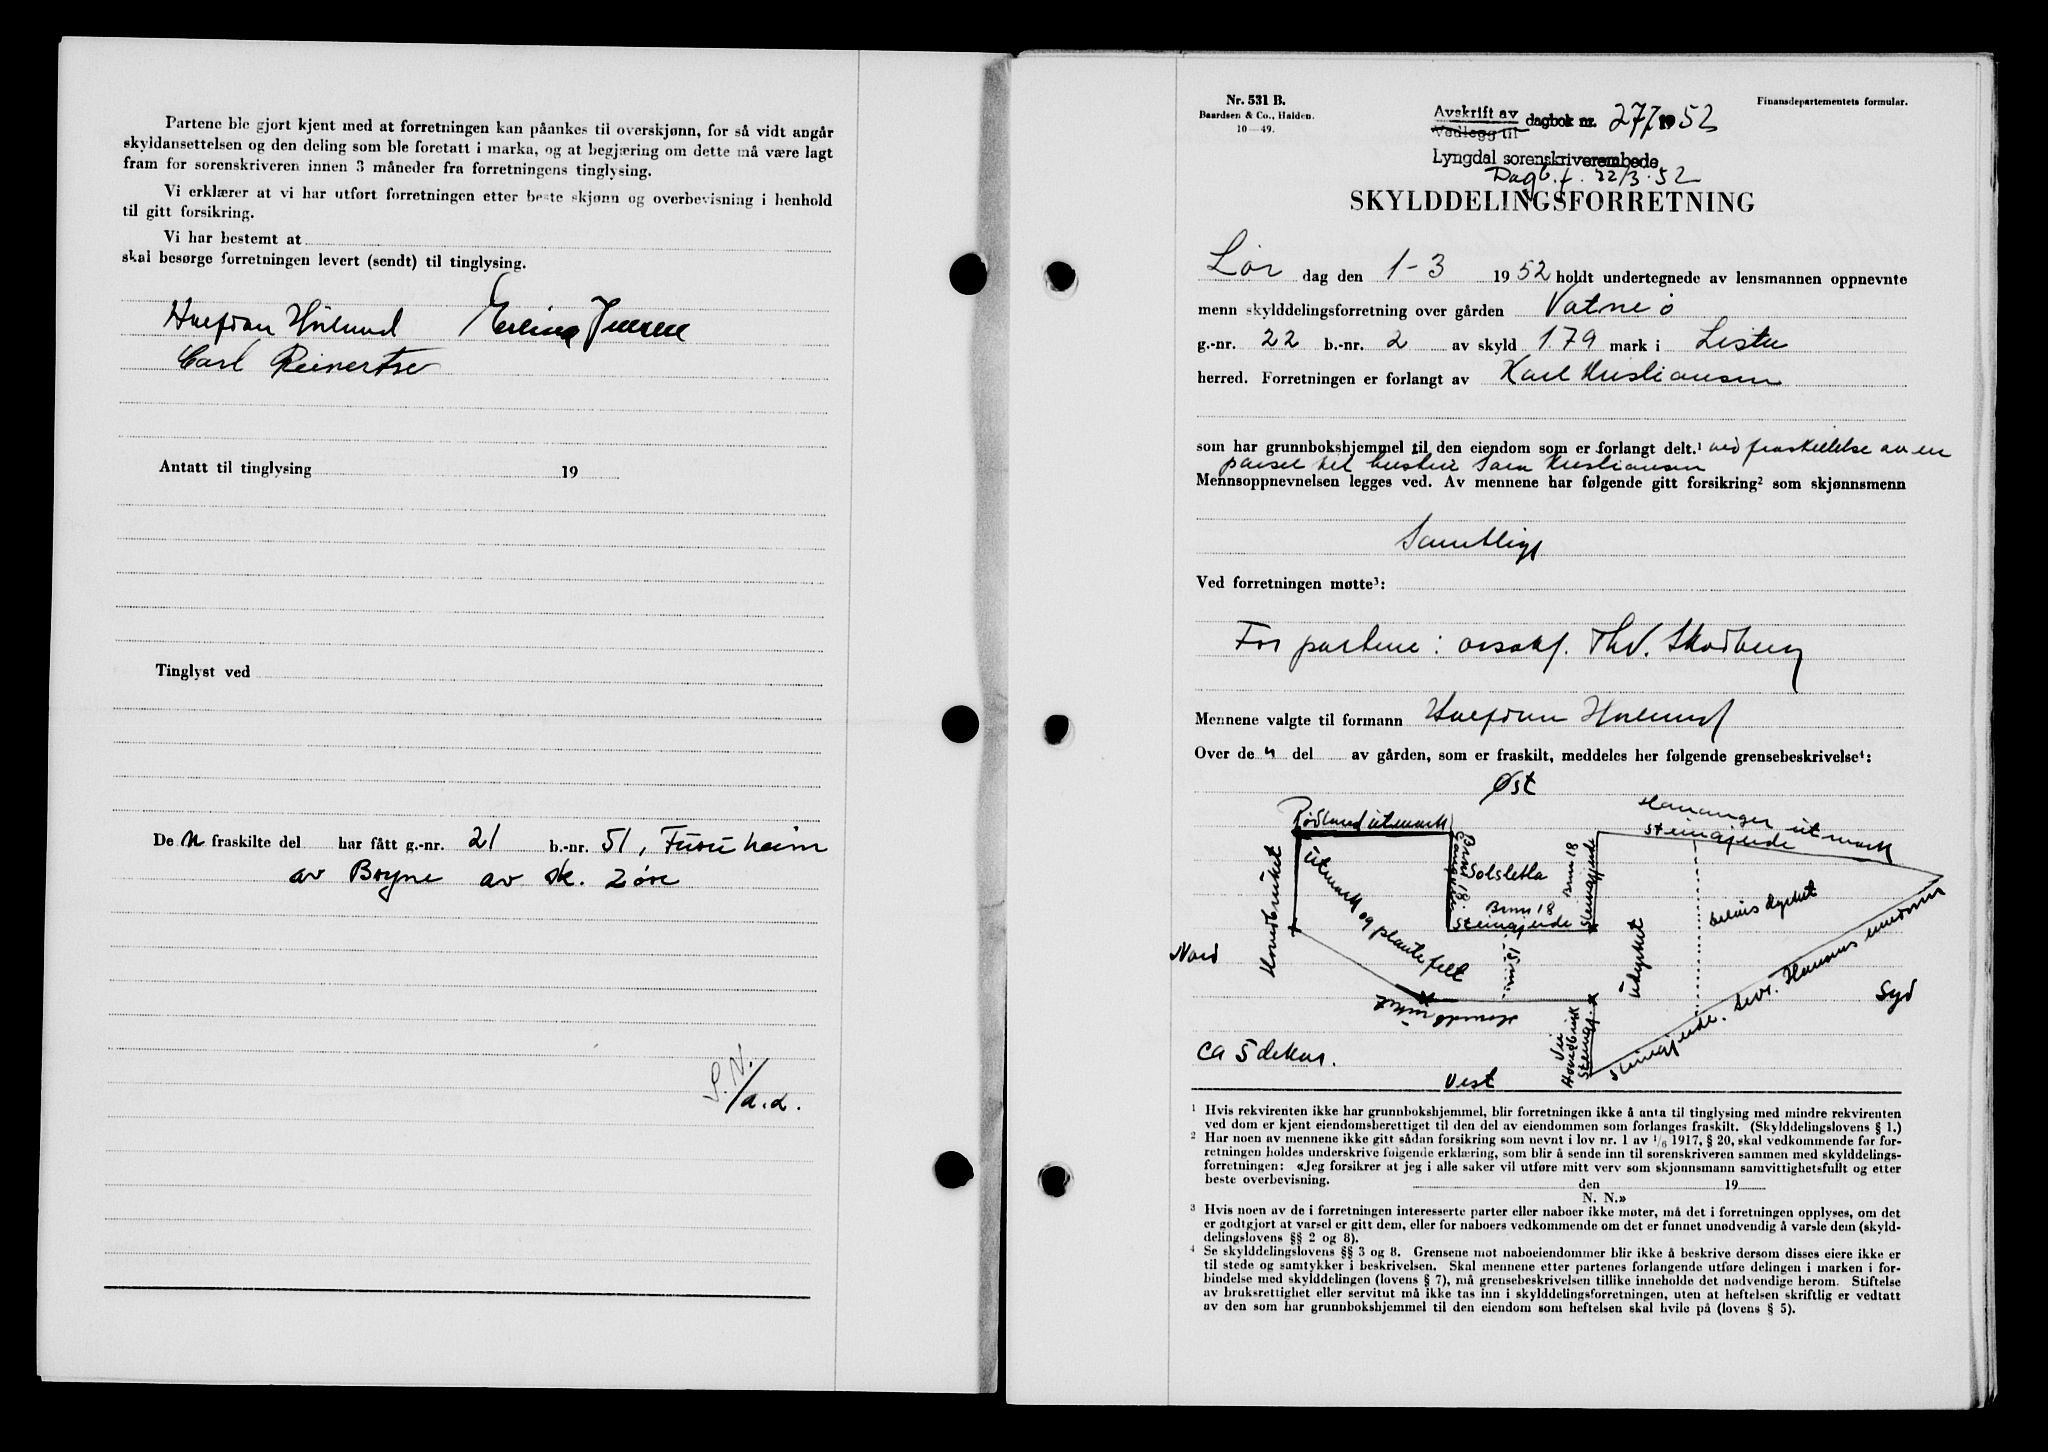 Partene ble gjort kjent med at forretningen kan påankes til overskjønn, for så vidt angår
skyldansettelsen og den deling som ble foretatt i marka, og at begjæring om dette må være lagt
fram for sorenskriveren innen 3 måneder fra forretningens tinglysing.
Vi erklærer at vi har utført forretningen etter beste skjønn og overbevisning i henhold
til gitt forsikring.
Vi har bestemt at
skal besørge forretningen levert (sendt) til tinglysing.
Erling Jensen
Carl Reinertse
Antatt til tinglysing 19
Tinglyst ved
De n fraskilte del har fått g.-nr. 21 b.-nr. 51, Furuheim
av Bryne av sk. 2 øre
S.N.
/a.d.
Nr. 531 B.
Baardsen & Co., Halden.
10—49.
Finansdepartementets formular.
Avskrift av
Vedlegg til dagbok nr. 277 1952
Lyngdal sorenskriverembede
Dagb. f. 22/3-52
SKYLDDELINGSFORRETNING
Lør dag den 1-3 1952 holdt undertegnede av lensmannen oppnevnte
menn skylddelingsforretning over gården Vatne ø
g.-nr. 22 b.-nr. 2 av skyld 1 79 mark i Lista
herred. Forretningen er forlangt av Karl Kristiansen
som har grunnbokshjemmel til den eiendom som er forlangt delt.¹ ved fraskillelse av en
parsel til hustru Sara Kristiansen
Mennsoppnevnelsen legges ved. Av mennene har følgende gitt forsikring² som skjønnsmenn
Samtlige
Ved forretningen møtte³:
For partene: o.r.sakf. Thv. Skodberg
Mennene valgte til formann
Over de n del av gården, som er fraskilt, meddeles her følgende grensebeskrivelse⁴:
Øst
Rødland utmark
utmark
Steingjerde
Hovedbruket
Utmark og plantefelt
Brnr 18
Solsletta
Brnr 18
Steingjerde
Brnr 18
Steingjerde
Udyrket
Delvis dyrket
Nord
Syd
15 m
Vei
Hovedbruk
Steingj.
Steingjerde.
ca 5 dekar.
Vest
¹ Hvis rekvirenten ikke har grunnbokshjemmel, blir forretningen ikke å anta til tinglysing med mindre rekvirenten
ved dom er kjent eiendomsberettiget til den del av eiendommen som forlanges fraskilt. (Skylddelingslovens § 1.)
² Har noen av mennene ikke gitt sådan forsikring som nevnt i lov nr. 1 av 1/6 1917, § 20, skal vedkommende før for-
retningen holdes underskrive følgende erklæring, som blir å sende inn til sorenskriveren sammen med skylddelings-
forretningen: «Jeg forsikrer at jeg i alle saker vil utføre mitt verv som skjønnsmann samvittighetsfullt og etter
beste overbevisning. den 19
N. N.»
³ Hvis noen av de i forretningen interesserte parter eller naboer ikke møter, må det i forretningen opplyses, om det
er godtgjort at varsel er gitt dem, eller for naboers vedkommende om det er funnet unødvendig å varsle dem (skyld-
delingslovens §§ 2 og 8).
⁴ Se skylddelingslovens §§ 3 og 8. Grensene mot naboeiendommer blir ikke å beskrive dersom disses eiere ikke er
til stede og samtykker i beskrivelsen. Skal mennene etter partenes forlangende utføre delingen i marken i for-
bindelse med skylddelingen (lovens § 7), må grensebeskrivelsen tillike inneholde det nødvendige herom. Stiftelse
av bruksrettighet eller servitut må ikke tas inn i skylddelingsforretningen, uten at heftelsen skriftlig er vedtatt
av den som har grunnbokshjemmel til den eiendom som heftelsen skal hvile på (lovens § 5).